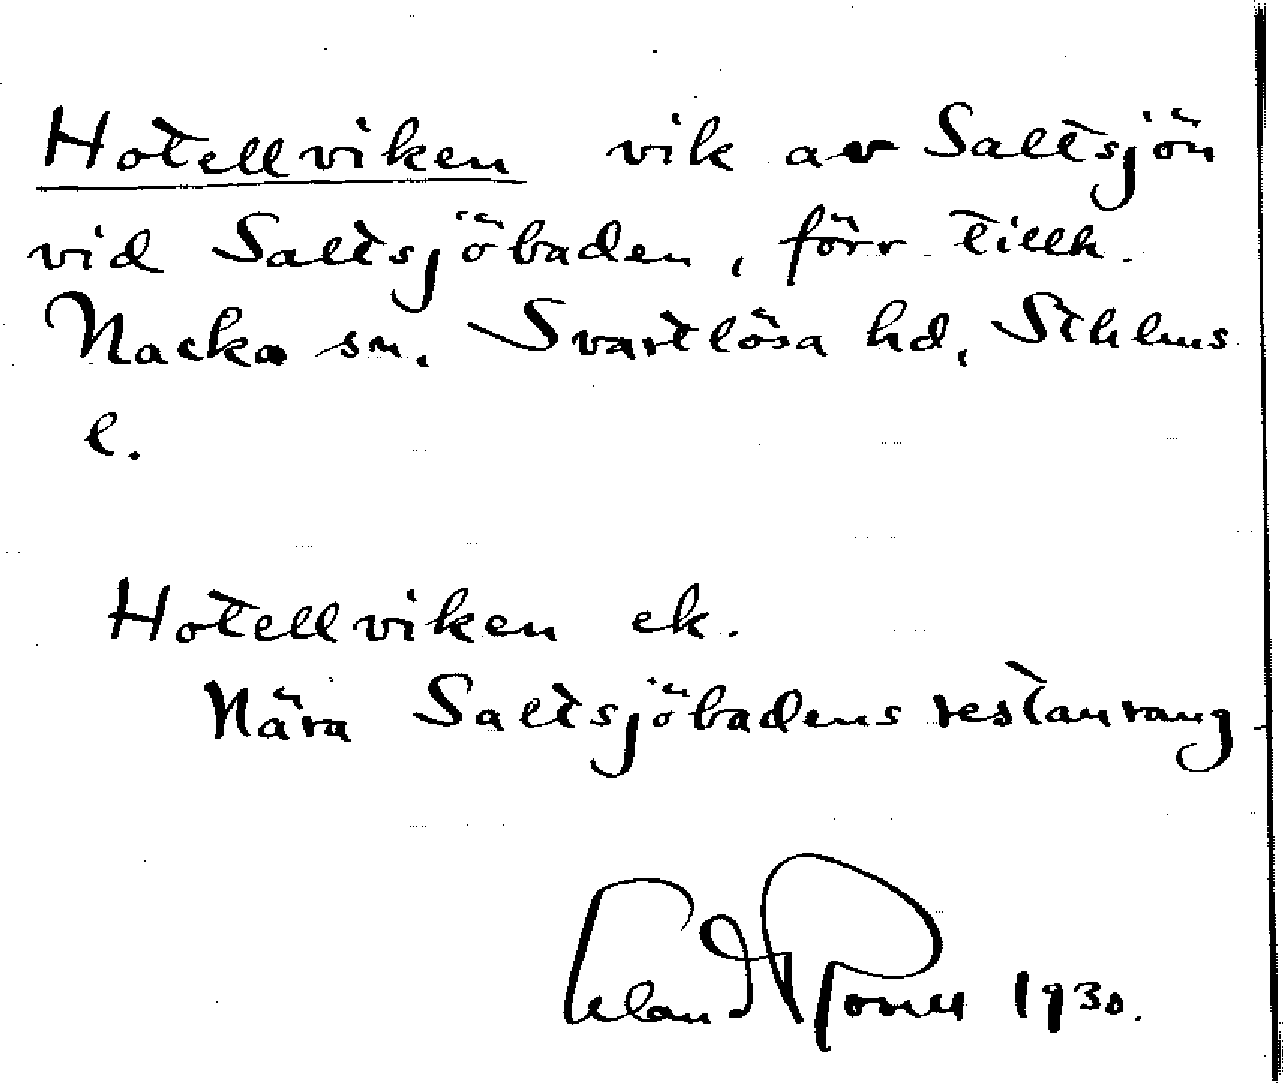 Hotellviken vik av Saltsjön
vid Saltsjöbaden, förr tillh.
Nacka sn. Svartlösa hd, Sthlms
l.
Hotellviken ek.
Nära Saltsjöbadens restaurang
1930.